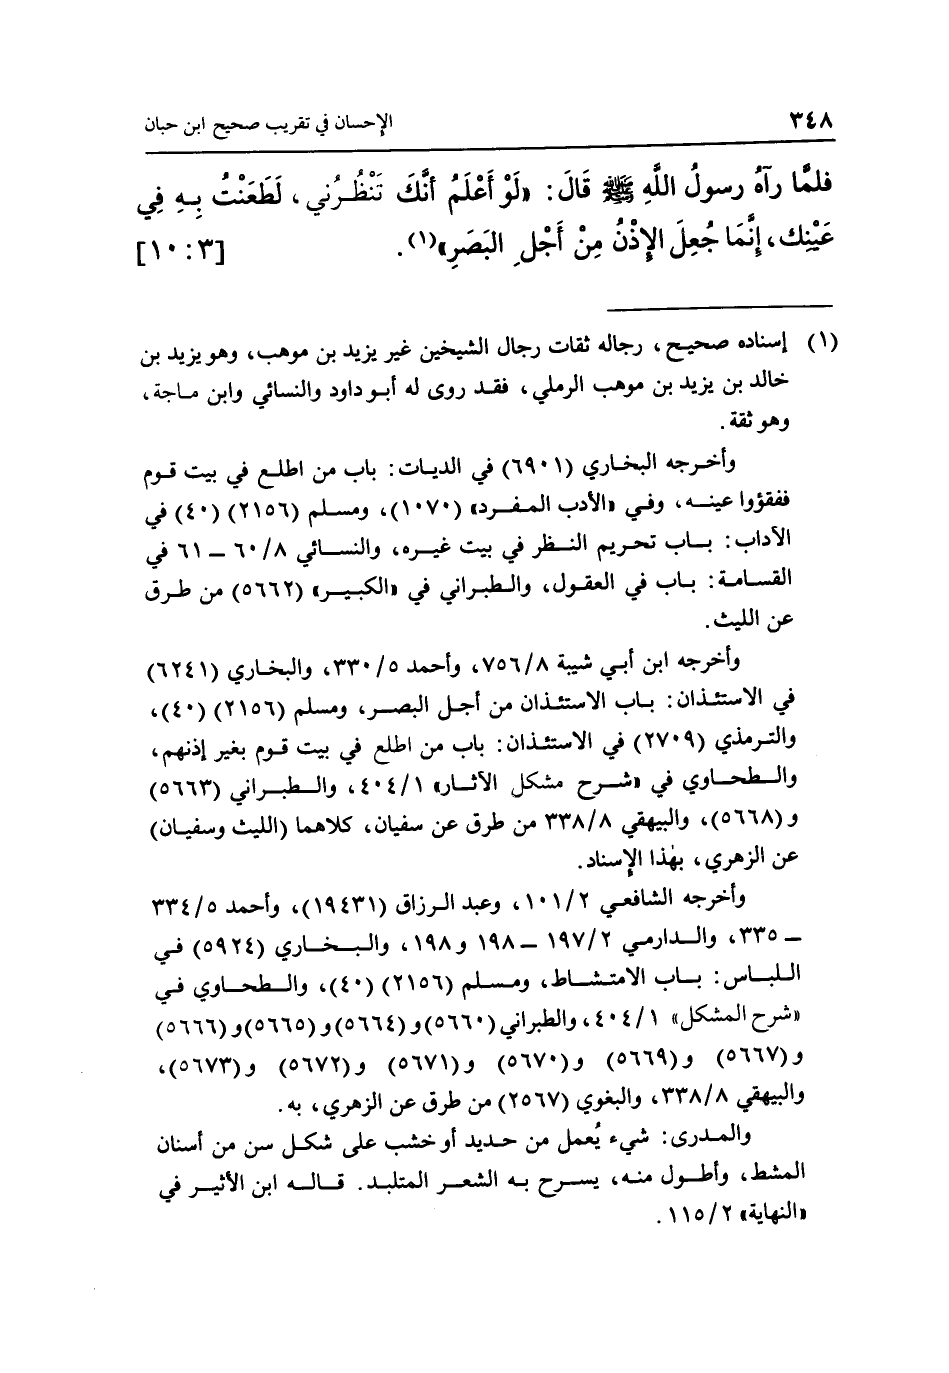 ٣٤٨ الإحسان في تقريب صحيح ابن حبان
فلمَّا رآهُ رسولُ اللَّهِ ﷺ قَالَ: «لَوْ أَعْلَمُ أنَّكَ تَنْظُرُني، لَطَعَنْتُ بِهِ فِي
عَيْنِك، إِنَّمَا جُعِلَ الإِذْنُ مِنْ أَجْلِ البَصَرِ»(١). [٣: ١٠]
(١) إسناده صحيح، رجاله ثقات رجال الشيخين غير يزيد بن موهب، وهو يزيد بن
خالد بن يزيد بن موهب الرملي، فقد روى له أبو داود والنسائي وابن ماجة،
وهو ثقة.
وأخرجه البخاري (٦٩٠١) في الديات: باب من اطلع في بيت قوم
ففقؤوا عينه، وفي «الأدب المفرد» (١٠٧٠)، ومسلم (٢١٥٦) (٤٠) في
الآداب: باب تحريم النظر في بيت غيره، والنسائي ٦٠/٨ ــ ٦١ في
القسامة: باب في العقول، والطبراني في «الكبير» (٥٦٦٢) من طرق
عن الليث.
وأخرجه ابن أبي شيبة ٧٥٦/٨، وأحمد ٣٣٠/٥، والبخاري (٦٢٤١)
في الاستئذان: باب الاستئذان من أجل البصر، ومسلم (٢١٥٦) (٤٠)،
والترمذي (٢٧٠٩) في الاستئذان: باب من اطلع في بيت قوم بغير إذنهم،
والطحاوي في «شرح مشكل الآثار» ٤٠٤/١، والطبراني (٥٦٦٣)
و(٥٦٦٨)، والبيهقي ٣٣٨/٨ من طرق عن سفيان، كلاهما (الليث وسفيان)
عن الزهري، بهٰذا الإِسناد.
وأخرجه الشافعي ١٠١/٢، وعبد الرزاق (١٩٤٣١)، وأحمد ٣٣٤/٥
ــ ٣٣٥، والدارمي ١٩٧/٢ ــ ١٩٨ و١٩٨، والبخاري (٥٩٢٤) في
اللباس: باب الامتشاط، ومسلم (٢١٥٦) (٤٠)، والطحاوي في
«شرح المشكل» ٤٠٤/١، والطبراني (٥٦٦٠) و(٥٦٦٤) و(٥٦٦٥) و(٥٦٦٦)
و(٥٦٦٧) و(٥٦٦٩) و(٥٦٧٠) و(٥٦٧١) و(٥٦٧٢) و(٥٦٧٣)،
والبيهقي ٣٣٨/٨، والبغوي (٢٥٦٧) من طرق عن الزهري، به.
والمدرى: شيء يُعمل من حديد أو خشب على شكل سن من أسنان
المشط، وأطول منه، يسرح به الشعر المتلبد. قاله ابن الأثير في
«النهاية» ١١٥/٢.